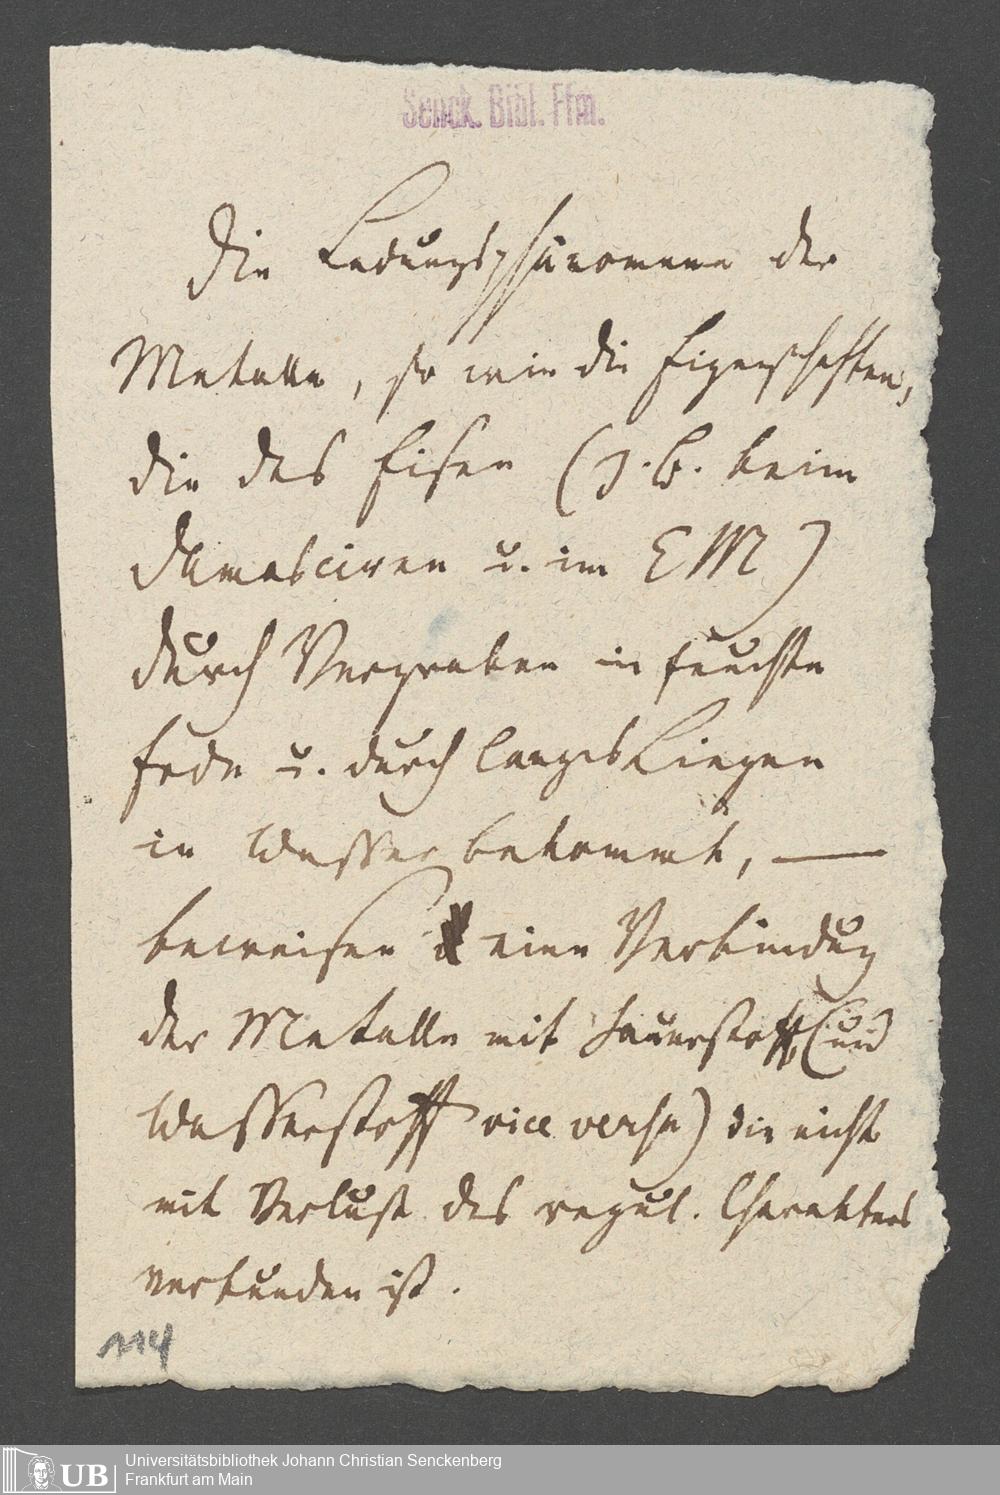 Senck. Bibl. Ffm.
Die Ladungsphänomene der
Metalle, so wie die Eigenschaften,
die das Eisen (z. B. beim
Damasciren u. im EM)
durch Vergraben in feuchte
Erde u. durch langes Liegen
in Wasser bekommt, —
beweisen eine Verbindung
der Metalle mit Sauerstoff (und
Wasserstoff vice versa) die nicht
mit Verlust des regul. Charakters
verbunden ist.
114
UB
Universitätsbibliothek Johann Christian Senckenberg
Frankfurt am Main